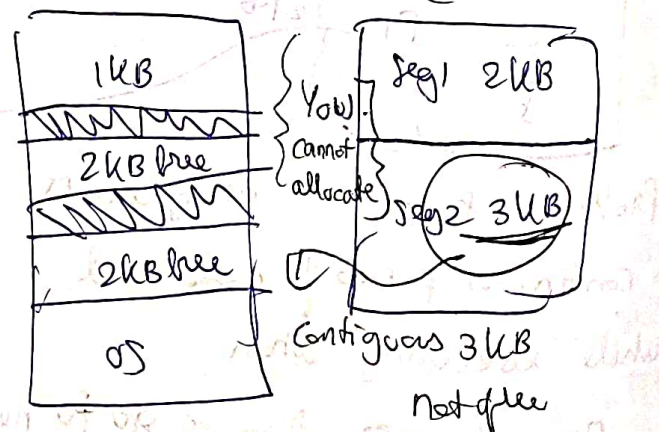 1KB
2KB free
2KB free
OS
You
cannot
allocate
Seg1 2KB
Seg2 3KB
Contiguous 3KB
not free